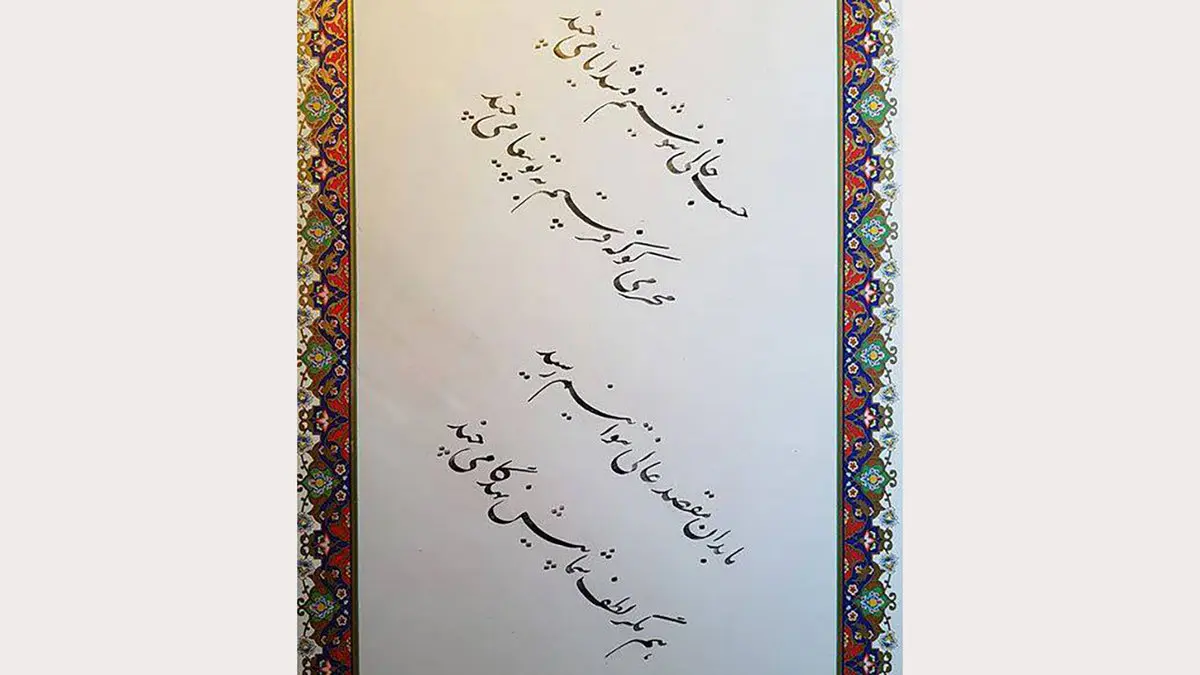 حسب حالی ننوشتیم و شد ایامی چند
محرمی کو که فرستیم به تو پیغامی چند
ما بدان مقصد عالی نتوانیم رسید
هم مگر لطف شما پیش نهد گامی چند